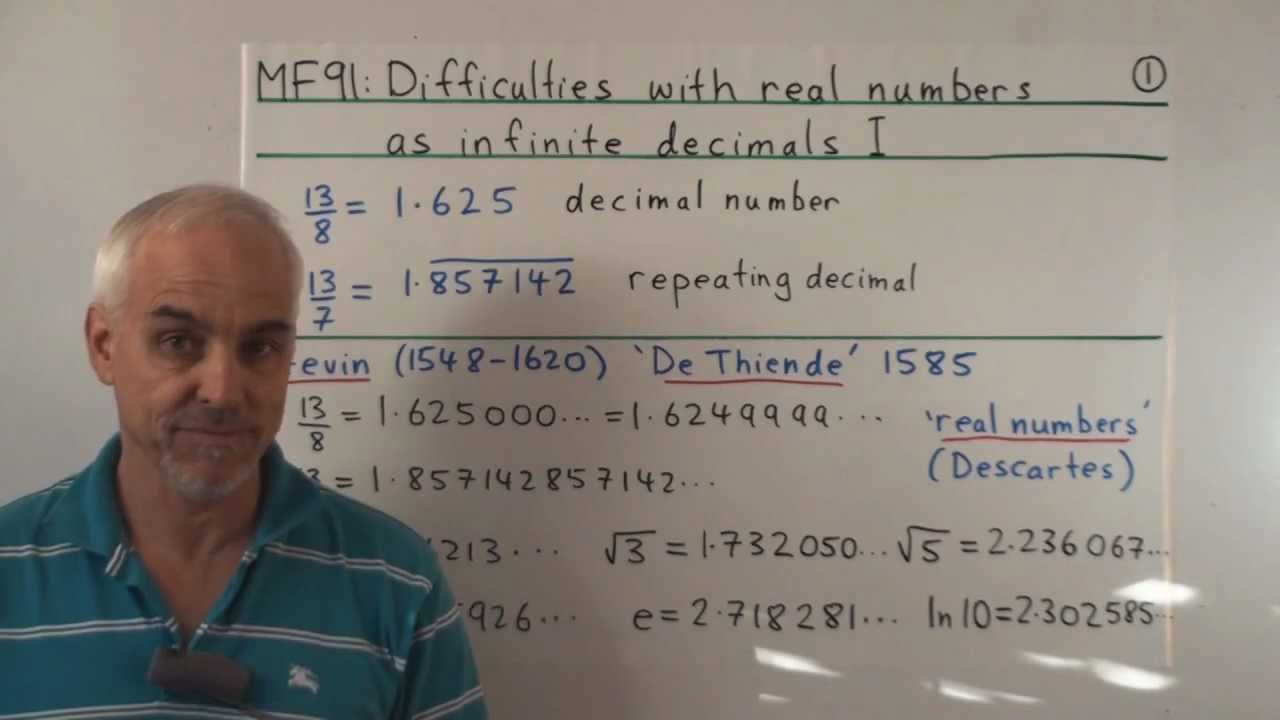 MF91: Difficulties with real numbers ①
as infinite decimals I
13/8 = 1·625 decimal number
13/7 = 1·8̅5̅7̅1̅4̅2̅ repeating decimal
evin (1548-1620) 'De Thiende' 1585
13/8 = 1·625000... = 1·6249999... 'real numbers'
(Descartes)
= 1·857142857142...
213... √3 = 1·732050... √5 = 2·236067...
926... e = 2·718281... ln 10 = 2·302585...